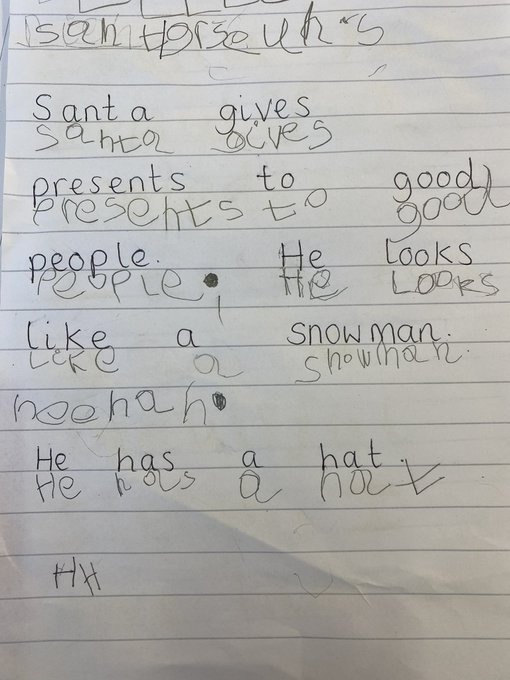 Santa gives
santa gives
presents to good
presents to good
people. He looks
people. He Looks
like a snowman.
Like a snowman.
noonan.
He has a hat.
He has a hat
HH